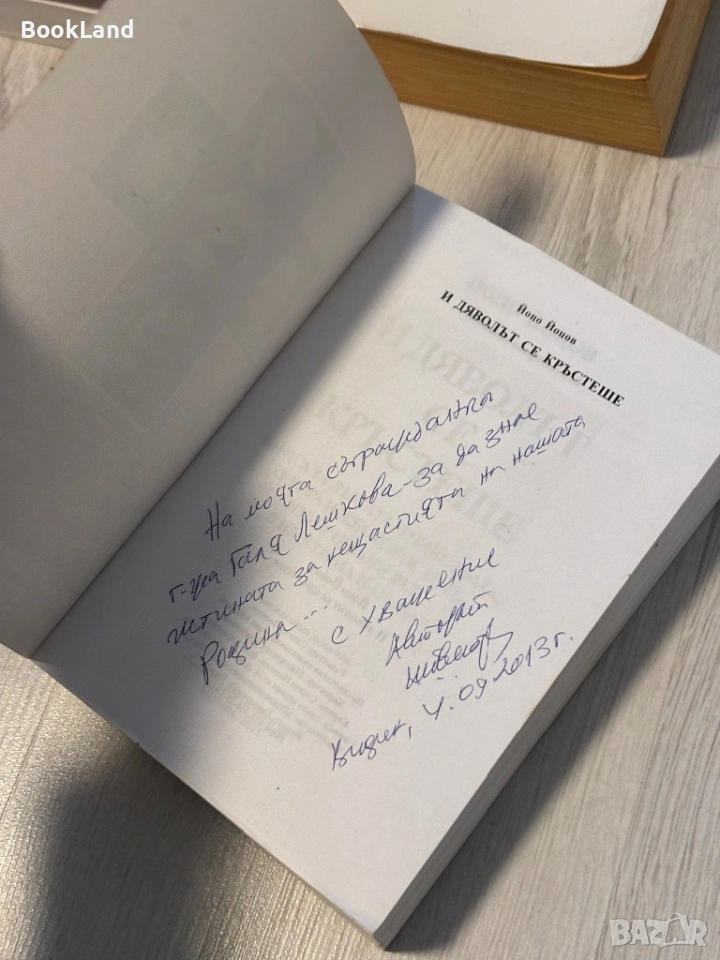 BookLand
Йоцо Йоцов
И ДЯВОЛЪТ СЕ КРЪСТЕШЕ
На моята съгражданка
г-жа Галя Лешкова - за да знае
истината за нещастията на нашата
Родина...
с уважение
Авторът
Видин, 4.09.2013 г.
BAZAR